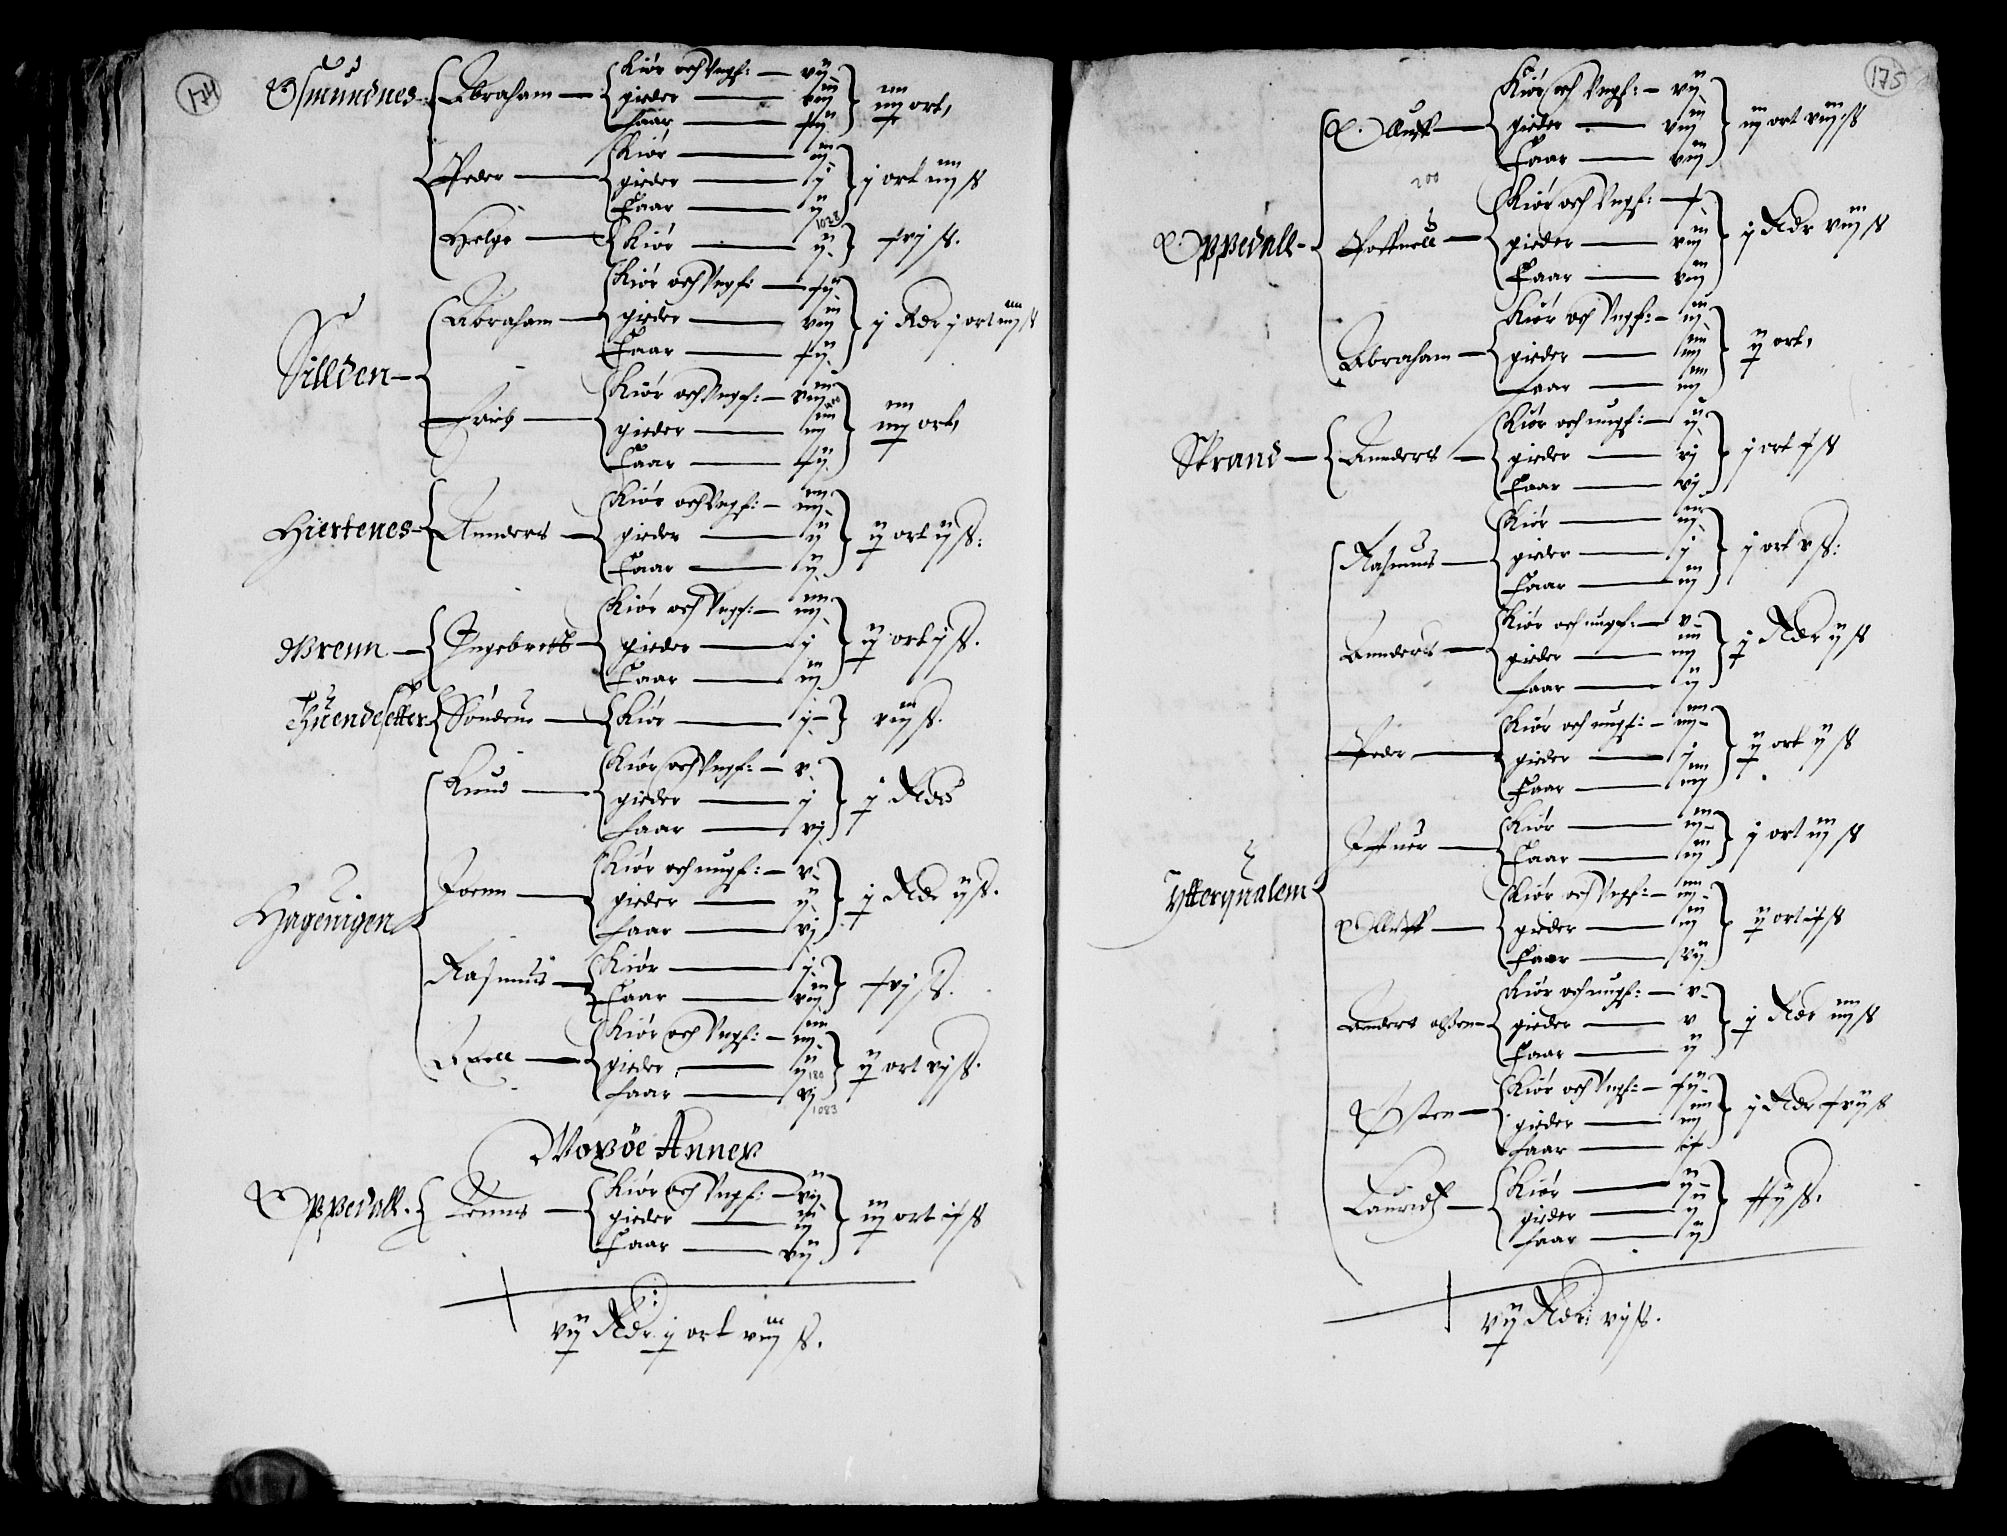 174
Osmundnes — Abraham — Kiør och Ungf: — vij
gieder — viij
faar — xij
iiij ort,
Peder — Kiør — iij
gieder — j
Faar — ij
j ort iiij ß
1028
Helge — Kiør — ij
xvj ß.
Sillden — Abraham — Kiør och Ungf: — xij
gieder — viij
Faar — xij
j Rdr j ort iiij ß
Kiør och Ungf: — viij
gieder — iiij
Faar — xij
iiij ort,
Hiertenes — Annders — Kiør och Ungf: — iiij
gieder — ij
Faar — ij
ij ort ij ß:
Wrenn — Ingebrett — Kiør och Ungf: — iiij
gieder — j
Faar — iij
ij ort ij ß.
Thuendesetter — Sønderes — Kiør — j
viij ß.
Hageuigen
Knud — Kiør och Ungf: — v
gieder — j
faar — vj
j Rdr
Joenn — Kiør och ungf: — v
gieder — ij
faar — vj
j Rdr ij ß.
Rasmus — Kiør — j
Faar — viij
xvj ß.
Axell — Kiør och Ungf: — iiij
gieder — ij
faar — vj
ij ort vj ß.
180
1083
Wovøe Annex
Oppedall — Kiør och Ungf: — vij
gieder — iij
Faar — vij
iij ort ix ß
vij Rdr j ort viij ß.
175
Olluff — Kiør och Ungf: — vij
gieder — viij
Faar — viij
iij ort viij ß
200
Oppedall — Kiør och Ungf: — x
gieder — viij
Faar — viij
j Rdr viij ß
Abraham — Kiør och Ungf: — iij
gieder — iiij
faar — iiij
ij ort,
Strand — Annders — Kiør och ungf: — ij
gieder — vj
Faar — vj
j ort x ß
Rasmus — Kiør — iij
gieder — j
Faar — iij
j ort v ß:
Annders — Kiør och ungf: — v
gieder — iiij
faar — ij
j Rdr ij ß
Peder — Kiør och ungf: — iiij
gieder — j
Faar — iiij
ij ort ij ß
Iffuer — Kiør — iij
Faar — iij
j ort iij ß
Ytterqualem
Olluff — Kiør och Ungf: — iiij
gieder — iij
Faar — vij
ij ort ix ß
Anders olßen — Kiør och ungf: — v
gieder — v
Faar — ij
j Rdr iiij ß
Østen — Kiør och Ungf: — xij
gieder — iiij
faar — ix
j Rdr xvij ß
Lauridß — Kiør — ij
gieder — ij
faar — ij
xxij ß.
vij Rdr: vj ß.